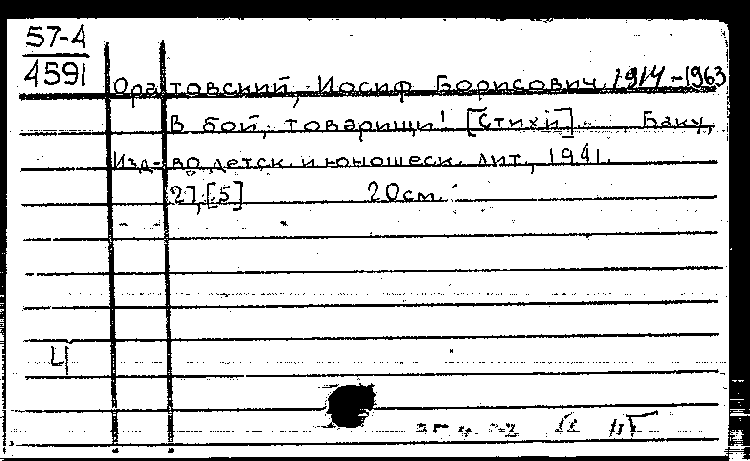 57-4
4591
Оратовский, Иосиф Борисович, 1914-1963
В бой, товарищи! [Стихи]. Баку,
Изд-во детск. и юношеск. лит., 1941.
27, [5] 20см.
Ч